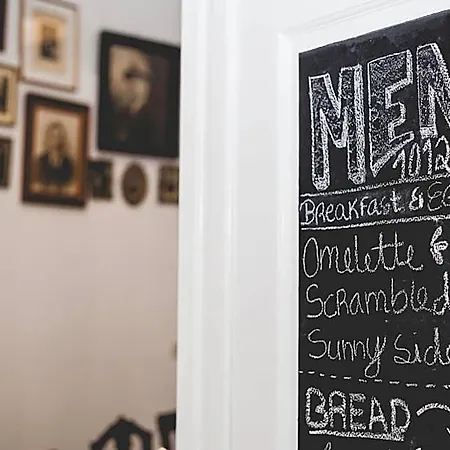 MEN
1012
Breakfast & EG
Omelette
Scrambled
Sunny side
BREAD